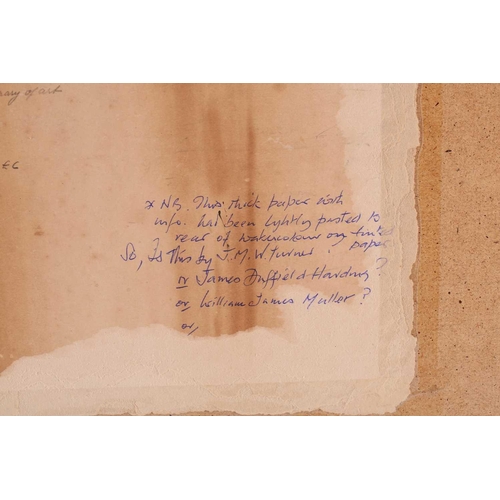 rary of art
£6
* NB. This thick paper with
info. has been lightly pasted to
rear of watercolour on tinted
paper
So, Is this by J.M.W Turner?
or James Duffield Harding?
or, William James Muller?
or,